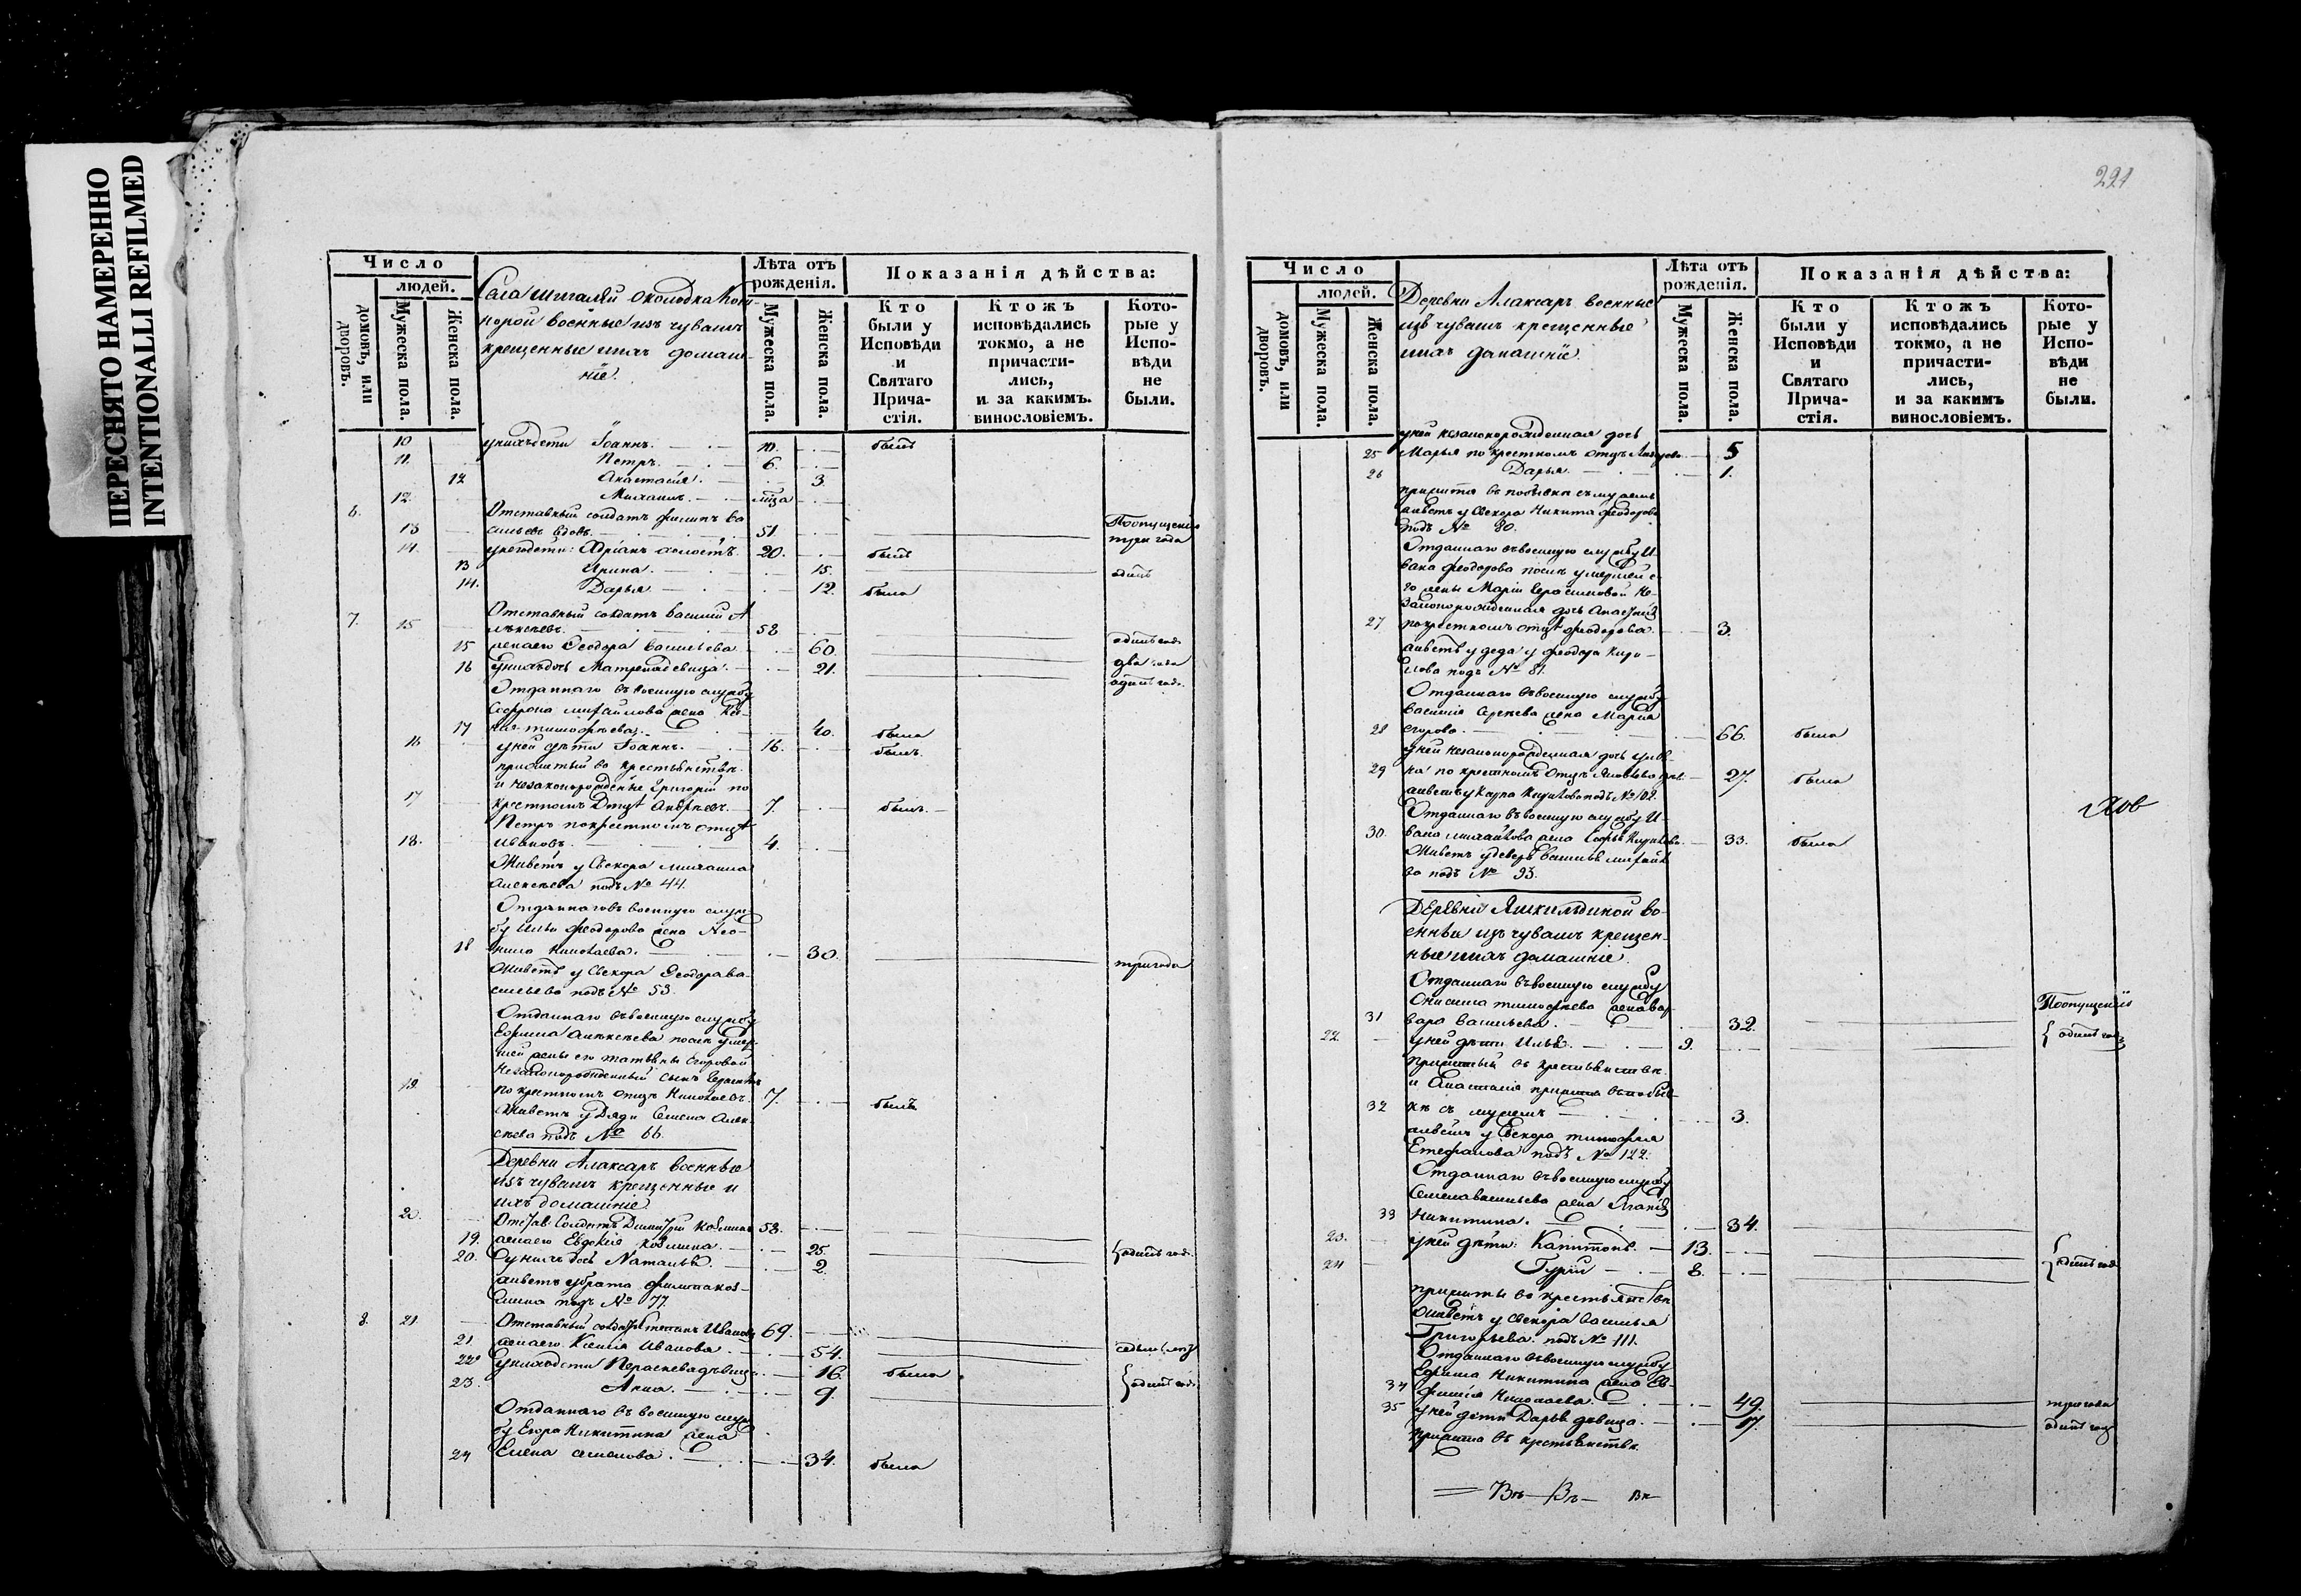 ПЕРЕСНЯТО НАМЕРЕННО
INTENTIONALLI REFILMED
Число
людей.
домовъ, или дворовъ.
Мужеска пола.
Женска пола.
Села околодка
порой военные изъ чувашъ
крещенные и ихъ домаш-
ніе.
Лѣта отъ рожденія.
Мужеска пола.
Женска пола.
Показанія дѣйства:
Кто были у Исповѣди и Святаго Прича-стія.
Ктожъ исповѣдались токмо, а не причасти-лись, и за какимъ. винословіемъ.
Кото-рые у Испо-вѣди не были.
10 у нихъ дети Іоаннъ. 10. былъ
11. Петръ. 6.
12 Анастасія. 3.
12. Михаилъ.
6. Отставный солдатъ Филипъ Ва
13 сильевъ вдовъ. 51. По опущенію три года
14. у него дети: Адріанъ холостъ. 20. былъ
13 Ирина. 15. одинъ
14. Дарья 12. была
7. Отставный солдатъ Василий А
15 лексеевъ. 58
15 жена его Ѳеодора Васильева 60. одинъ годъ
16 у нихъ дочь Матрена девица. 21. два года
Отданнаго въ военную службу одинъ годъ.
Софрона Михайлова жена
17 Тимофеева. 40. была
16 у ней дети Іоаннъ. 16. былъ.
прижитый въ крестьянстве.
и незаконорожденые Григорий по
17 крестномъ Отце Андреевъ. 7. былъ.
Петръ по крестномъ отце
18. Ивановъ. 4.
Живетъ у Свекора Михаила
Алексеева подъ № 44.
Отданнаго въ военную служ-
бу Ильи Феодорова жена Нео-
18 нила Николаева. 30. три года
Живетъ у Свекора Ѳеодора Ва-
сильева подъ № 53.
Отданнаго въ военную службу
Ефима Алексеева после умер-
шей жены его Татьяны Егоровой
незаконорожденный сынъ
19. по крестномъ отце Николаевъ. 7. былъ
Живетъ у Дяди Семена Алек-
сеева подъ № 66.
Деревни Алаксаръ военные
изъ чувашъ крещенные и
ихъ домашніе
20. Отстав. Солдатъ Димитрій Козминъ 58.
19. жена его Евдокія Козмина. 25. одинъ годъ.
20. у нихъ дочь Наталья. 2.
живетъ у брата Филипа Коз-
мина подъ № 77.
8. 21 Отставный солдатъ Степанъ Ивановъ 69.
21 жена его Ксенія Иванова. 54. седмь летъ
22 у нихъ дети Параскева девица. 16. была
23. Анна. 9. одинъ годъ
Отданнаго въ военную служ
бу Егора Никитина жена
24 Елена Семенова. 34. была
221
Число
людей.
домовъ, или дворовъ.
Мужеска пола.
Женска пола.
Деревни Алаксаръ военные
изъ чувашъ крещенные
и ихъ домашніе.
Лѣта отъ рожденія.
Мужеска пола.
Женска пола.
Показанія дѣйства:
Кто были у Исповѣди и Святаго Прича-стія.
Ктожъ исповѣдались токмо, а не причасти-лись, и за какимъ винословіемъ.
Кото-рые у Испо-вѣди не были.
у ней незаконорожденная дочь
25 Марья по крестномъ отце 5
26 Дарья. 1.
прижита въ побывки съ мужемъ
живетъ у Свекора Никиты Феодорова
подъ № 80.
Отданнаго въ военную службу И-
вана Феодорова после умершей е-
го жены Маріи Герасимовой не-
законорожденная дочь Анастасія
27 по крестномъ отце Феодорова. 3.
живетъ у деда у Феодора Кири-
лова подъ № 81.
Отданнаго въ военную службу
Василія Сергеева жена Марія
28 Егорова. 66. была
у ней незаконорожденная дочь Улья-
29 на по крестномъ Отце 27. была
живетъ у Карпа подъ № 102.
Отданнаго въ военную службу И-
30. вана Михайлова жена Софья 33. была
Живетъ у деверя Василья Михайло
ва подъ № 93.
Яков
Деревни Яшкильдиной во-
енные изъ чувашъ крещен-
ные и ихъ домашніе.
Отданнаго въ военную службу По опущенію
Онисима Тимофеева жена Вар-
31 вара Васильева. 32. одинъ годъ
22. у ней дети Илья. 9.
прижитый въ крестьянстве.
и Анастасія прижита въ побыв-
32 ке съ мужемъ 3.
живетъ у Свекора Тимофея
Стефанова подъ № 122.
Отданнаго въ военную службу
Семена Васильева жена Агафія
33 Никитина. 34.
23. у ней дети: Капитонъ. 13. одинъ годъ
24 Гурій 8.
прижиты въ крестьянстве
Живетъ у свекора Василья
Григорьева. подъ № 111.
Отданнаго въ военную службу
Ефима Никитина жена Ев-
34 фимія Николаева. 49. три года
35 у ней дети Дарья девица. 17. одинъ годъ
прижита въ крестьянстве.